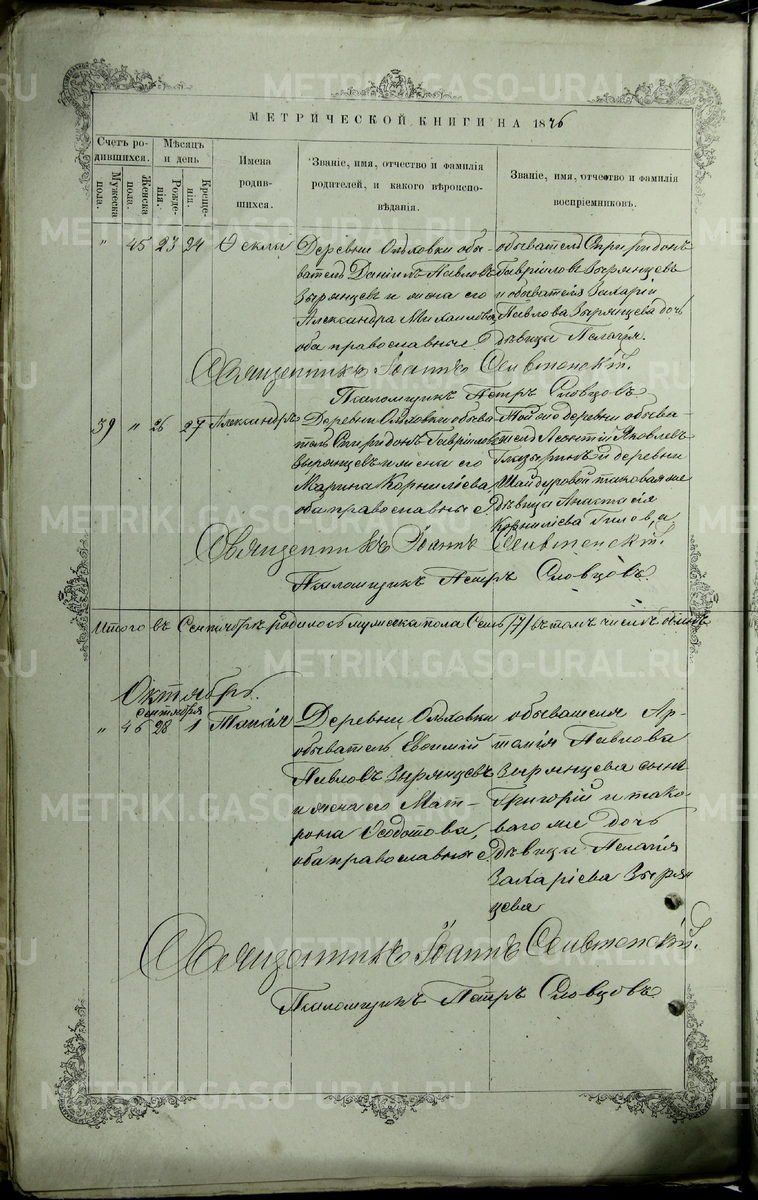 МЕТРИЧЕСКОЙ КНИГИ НА 1876
Счетъ родившихся.
Мужеска пола.
Женска пола.
Мѣсяцъ и день
Рожденія.
Крещенія.
Имена родившихся.
Званіе, имя, отчество и фамилія родителей, и какого вѣроисповѣданія.
Званіе, имя, отчество и фамилія воспріемниковъ.
" 45 23 24 Ѳекла
Деревни Ольховки обы-
ватель Даніилъ Павловъ
Зырянцевъ и жена его
Александра Михаилова,
оба православные
обыватель Спиридонъ
Гавріиловъ Зырянцевъ
и обывателя Захарія
Павлова Зырянцева дочь
дѣвица Пелагія.
Священникъ Іоаннъ
Псаломщикъ Петръ Словцовъ
39 " 26 27 Александръ
Деревни Ольховки обыва-
тель Спиридонъ Гавріиловъ
Зырянцевъ и жена его
Марина Корниліева,
оба православные
Той же деревни обыва-
тель Леонтій Яковлевъ
Глазыринъ и деревни
Шайдуровой таковая же
дѣвица Анастасія
Корниліева
Священникъ Іоаннъ
Псаломщикъ Петръ Словцовъ
Итого въ Сентябрѣ родилось мужеска пола Семь /7/ въ томъ числѣ
Октябрь.
Сентября
" 46 28 1 Таисія
Деревни Ольховки
обыватель Евѳимій
Павловъ Зырянцевъ
и жена его Мат-
рона Ѳеодотова,
оба православные
обывателя Ар-
Павлова
Зырянцева сынъ
Григорій и тако-
ваго же дочь
дѣвица Пелагія
Захаріева Зырян-
цева
Священникъ Іоаннъ
Псаломщикъ Петръ Словцовъ
METRIKI.GASO-URAL.RU